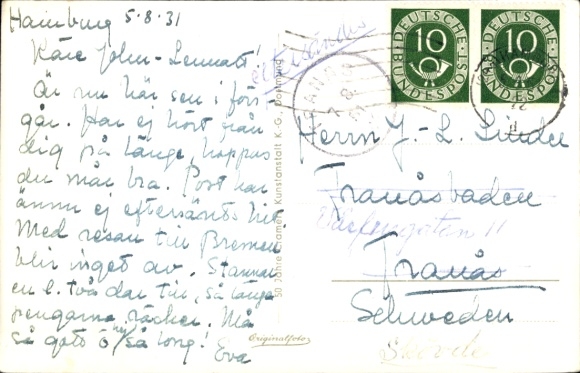 Hamburg 5.8.31
Käre John-Lennart!
Är nu här sen i förs-
går. Har ej hört från
dig på länge, hoppas
du mår bra. Post har
ännu ej eftersänts hit.
Med resan till Bremen
blir inget av. Stannar
en l. två dar till, så länge
pengarna räcker. Må
så gott ô så long!
Eva
50 Jahre Cramers Kunstanstalt K.-G., Dortmund
Originalfoto
DEUTSCHE BUNDESPOST
10
DEUTSCHE BUNDESPOST
10
TRANÅS
Herrn J.-L. Linder
Tranåsbaden
11
Tranås
Schweden
Skövde